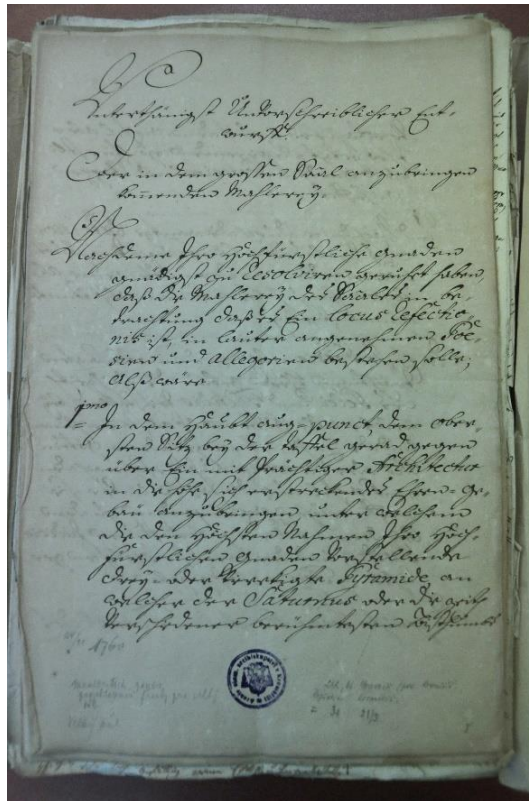 Unterthänigst Unvorschreiblicher Ent-
wurff.
Der in dem grossen Saal anzubringen
kommenden Mahlerey.
Nachdeme Ihro Hochfürstliche Gnaden
gnädigst zu resolviren geruhet haben,
daß die Mahlerey des Saales in be-
trachtung daß es Ein locus refectio-
nis ist, in lauter angenehmen Poe-
sien und Allegorien bestehen solle;
Alß wäre
1mo In dem Haubt aug-punct, dem ober-
sten Sitz bey der taffel gerad gegen
über Ein mit Prächtiger Architectur
in die höhe sich erstreckendes Ehren-Ge-
bäu anzubringen, unter welchem
die den Höchsten Nahmen Ihro Hoch-
fürstlichen Gnaden Vorstellende
drey- oder Pyramide, an
welcher der Saturnus oder die Zeit
Verschiedener berühmtesten
1760